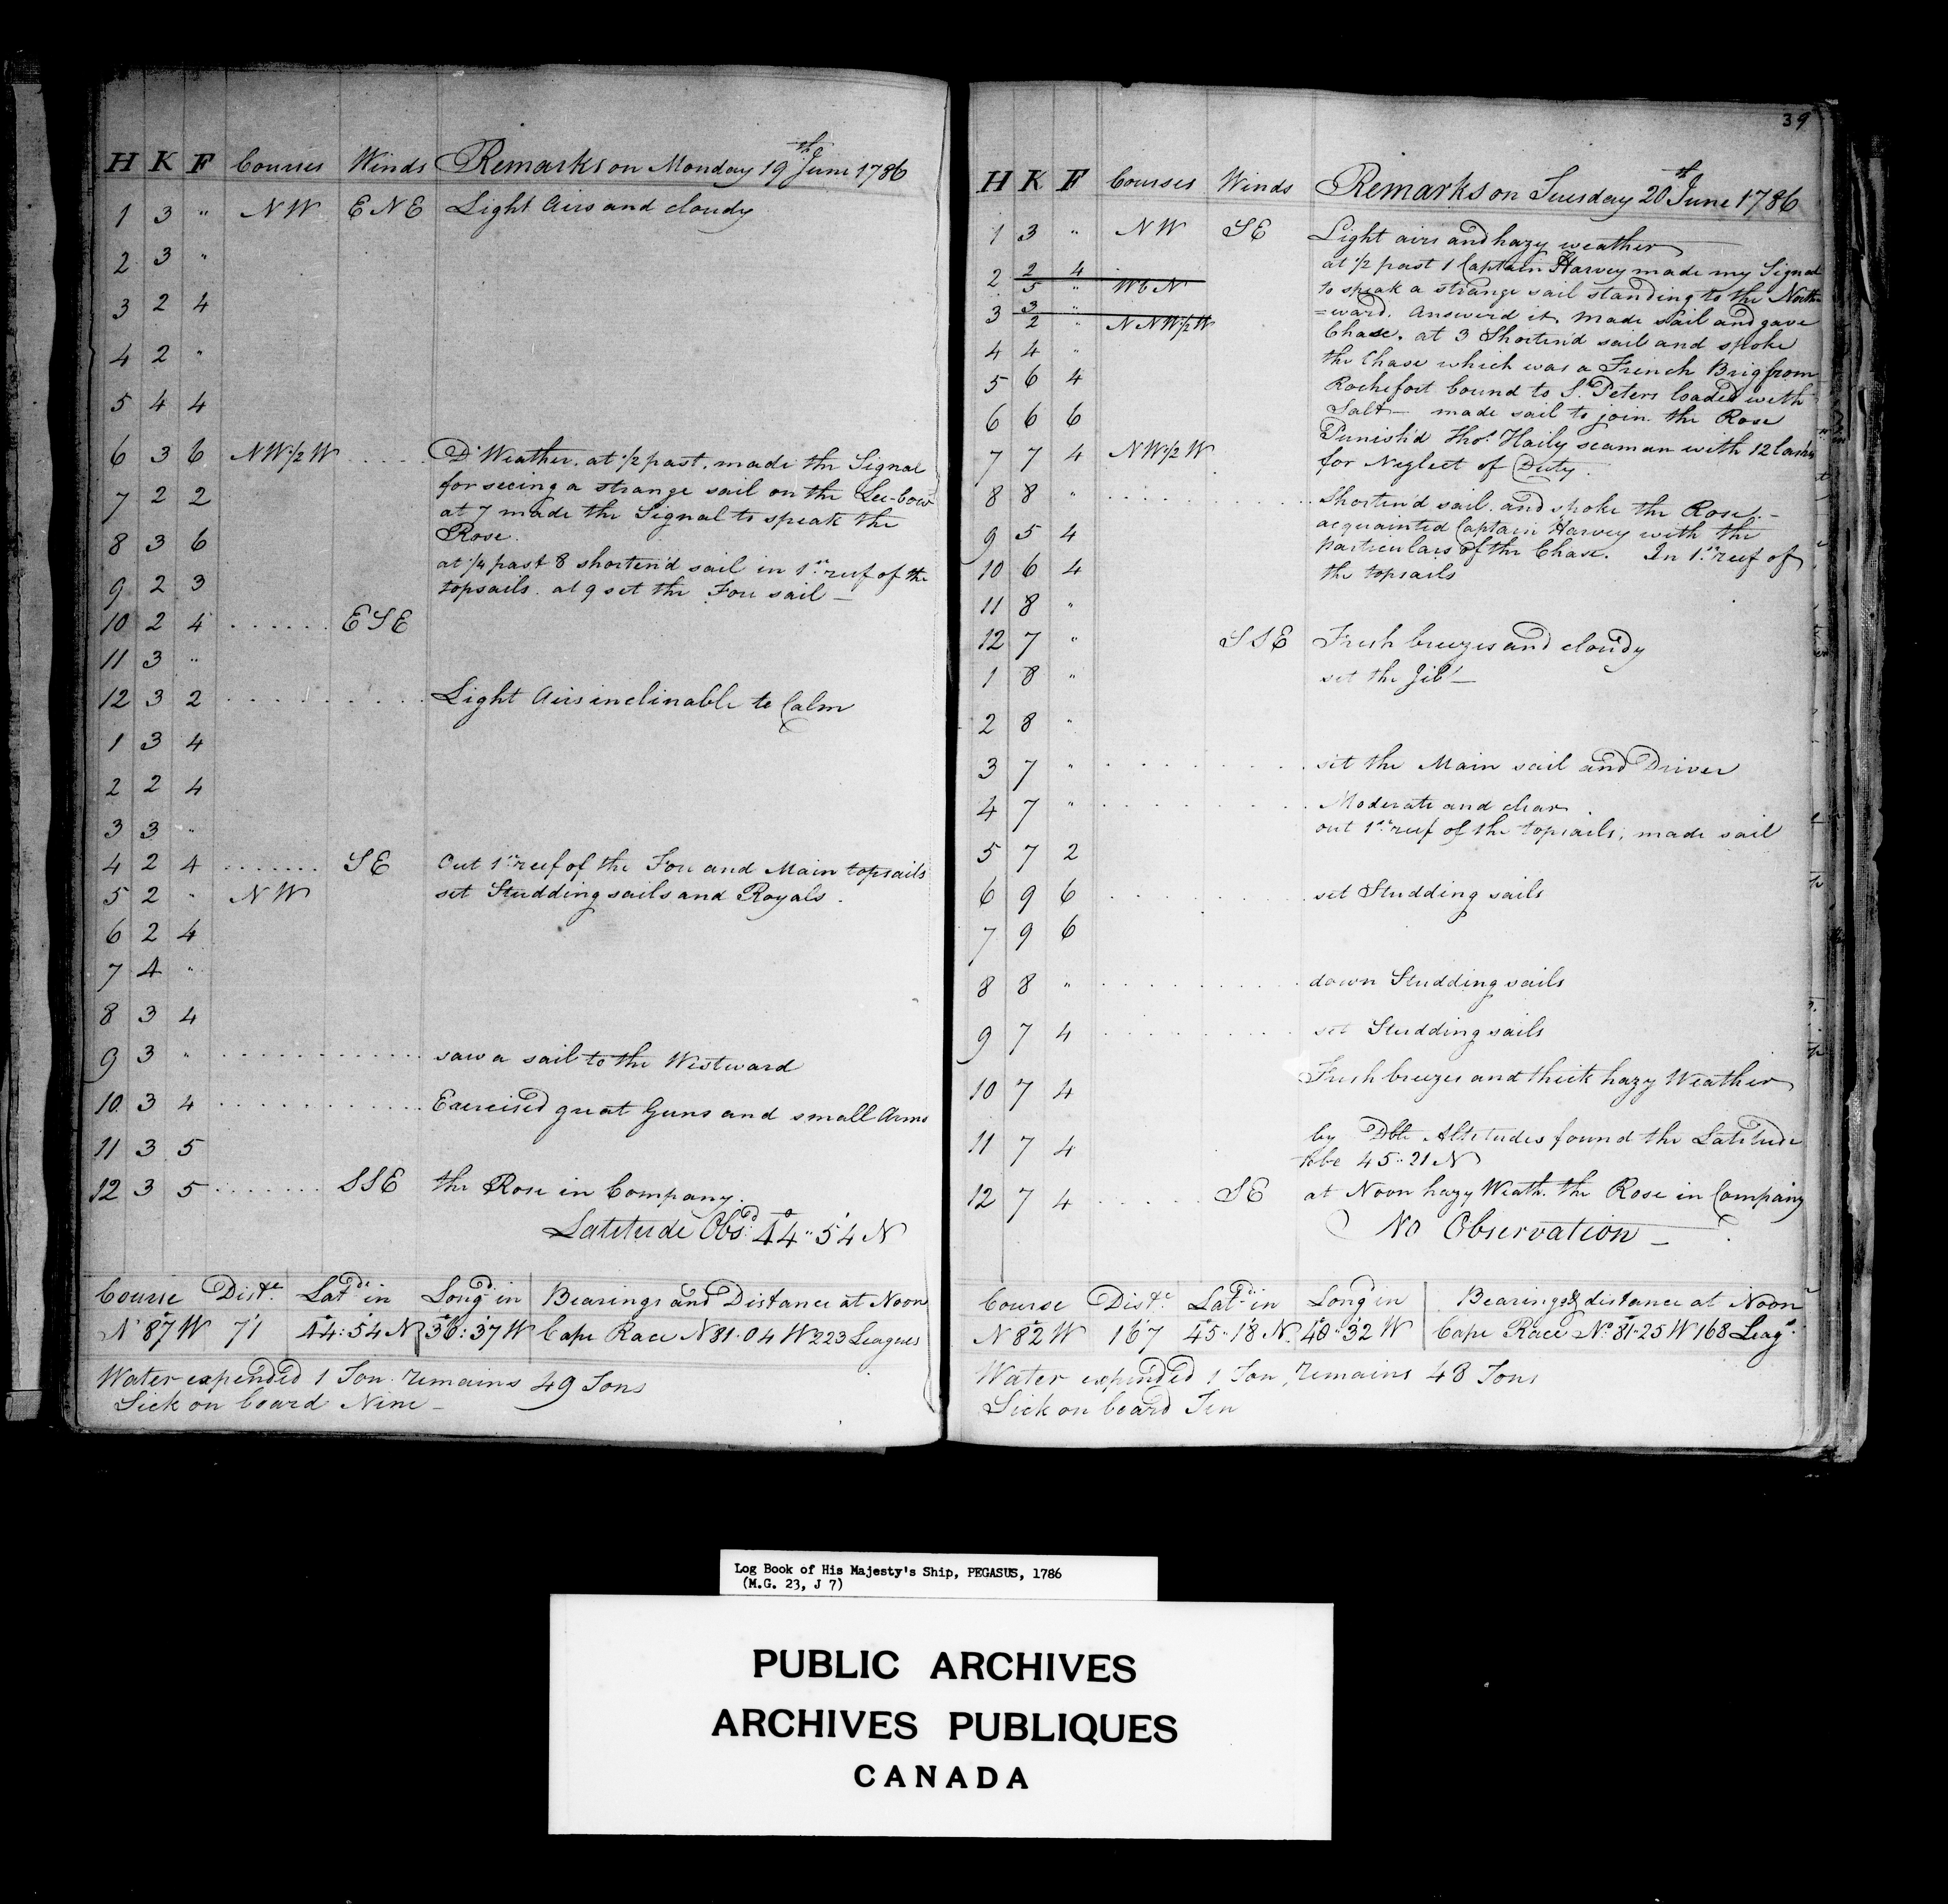 H K F Courses Winds Remarks on Monday 19th June 1786
1 3 " NW ENE Light Airs and cloudy
2 3 "
3 2 4
4 2 "
5 4 4
6 3 6 NW½W Do Weather. at ½ past. made the Signal
for seeing a strange sail on the Lee-bow
7 2 2
at 7 made the Signal to speak the
8 3 6 Rose.
at ¼ past 8 shorten'd sail in 1st reef of the
9 2 3 topsails. at 9 set the Fore sail —
10 2 4 ESE
11 3 "
12 3 2 Light Airs inclinable to Calm
1 3 4
2 2 4
3 3 "
4 2 4 SE Out 1st reef of the Fore and Main topsails
5 2 " NW set Studding sails and Royals.
6 2 4
7 4 "
8 3 4
9 3 " saw a sail to the Westward
10 3 4 Exercised great Guns and small Arms
11 3 5
12 3 5 SSE the Rose in Company.
Latitude Obsd. 44°" 54' N
Course Diste. Latde in Longd in Bearings and Distance at Noon
N° 87 W 71 44°: 54 N 36°: 37 W Cape Race N 81.04 W 223 Leagues
Water expended 1 Ton. remains 49 Tons
Sick on board Nine —
39
H K F Courses Winds Remarks on Tuesday 20th June 1786
1 3 " NW SE Light airs and hazy weather
at ½ past 1 Captain Harvey made my Signal
2 2 4
5 " WbN to speak a strange sail standing to the North
3 3 " =ward. Answerd it, made sail and gave
2 " NNW½W Chase. at 3 Shorten'd sail and spoke
4 4 " the Chase which was a French Brig from
5 6 4 Rochefort bound to St. Peters loaded with
6 6 6 Salt — made sail to join the Rose
Punish'd Thos. Haily seaman with 12 lashes
7 7 4 NW½W for Neglect of Duty.
8 8 " Shorten'd sail. and spoke the Rose. —
acquainted Captain Harvey with the
9 5 4 particulars of the Chase. In 1st reef of
10 6 4 the topsails
11 8 "
12 7 " SSE Fresh breezes and cloudy
1 8 " set the Jib —
2 8 "
3 7 " set the Main sail and Driver
4 7 " Moderate and clear
out 1st reef of the topsails, made sail
5 7 2
6 9 6 set Studding sails
7 9 6
8 8 " down Studding sails
9 7 4 set Studding sails
10 7 4 Fresh breezes and thick hazy Weather
11 7 4 by Dble Altitudes found the Latitude
to be 45" 21 N
12 7 4 SE at Noon hazy Weath. the Rose in Company
No Observation —
Course Diste. Latde in Long in Bearings & distance at Noon
N 82° W 167 45" 18 N. 40°" 32 W Cape Race No 81.25 W 168 Leags.
Water expended 1 Ton, remains 48 Tons
Sick on board Ten
Log Book of His Majesty's Ship, PEGASUS, 1786
(M.G. 23, J 7)
PUBLIC ARCHIVES
ARCHIVES PUBLIQUES
CANADA